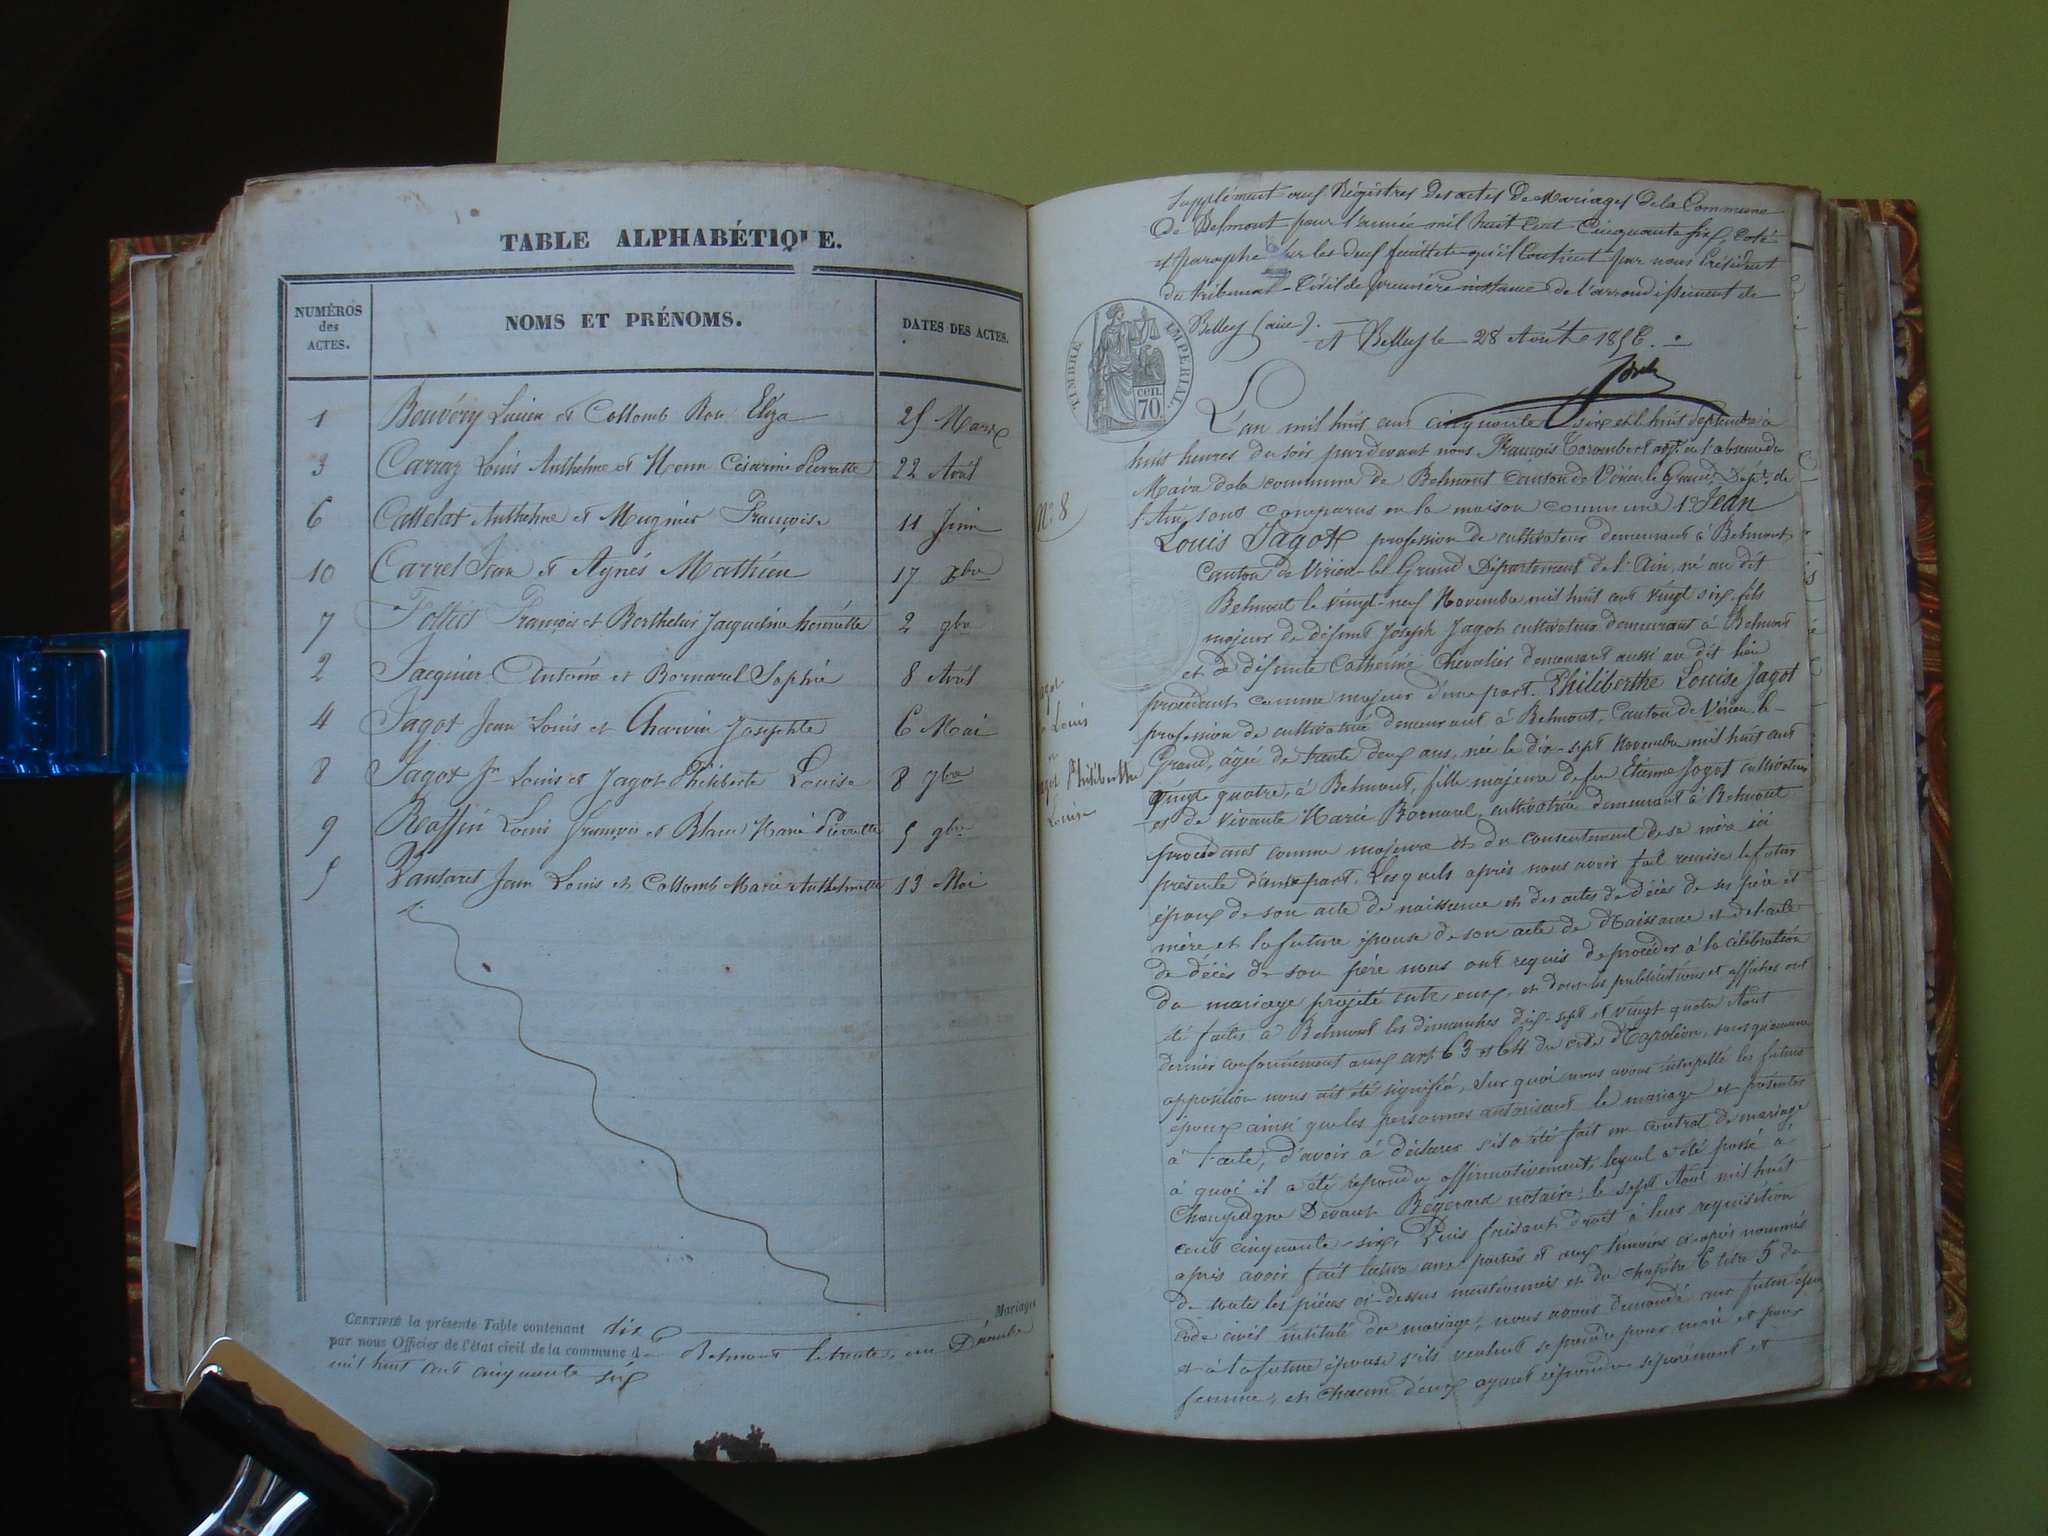 TABLE ALPHABÉTIQUE.
NUMÉROS des ACTES.
NOMS ET PRÉNOMS.
DATES DES ACTES.
1 Bouvéry Lucien et Collomb Eliza 25 Mars
3 Carraz Louis Anthelme et Césarine Pierrette 22 Avril
6 Anthelme et Mugnier Françoise 11 Juin
10 Carrel Jean et Agnés Mathieu 17 xbre
7 François et Berthelier Jacqueline henriette 2 7bre
2 Jacquier Antoine et Bornarel Sophie 8 Avril
4 Jagot Jean Louis et Charvin Josephte 6 Mai
8 Jagot Jn Louis et Jagot Philiberte Louise 8 7bre
9 Raffin Louis françois et Blanc Marie Pierrette 5 9bre
5 Jean Louis et Collomb Marie Anthelmette 13 Mai
CERTIFIÉ la présente Table contenant dix Mariages
par nous Officier de l'état civil de la commune de Belmont le trente un Décembre
mil huit cent cinquante six
Supplément aux Régistres des actes de Mariages de la Commune
De Belmont pour l'année mil huit Cent Cinquante six, Coté
et paraphé sur les deux feuillets qu'il Contient par nous Président
du tribunal Civil de première instance de l'arrondissement de
Belley (ain).
A Belley le 28 Août 1856.
TIMBRE IMPÉRIAL
CEN. 70
L'an mil huit cent cinquante six et le huit septembre à
huit heures du soir pardevant nous François en l'absence du
Maire de la commune de Belmont canton de Virieu le Grand, Dépt. de
l'Ain, sont comparus en la maison commune 1° Jean
No. 8
Louis Jagot profession de cultivateur demeurant à Belmont
Canton de Virieu-le Grand Département de l'Ain, né au dit
Belmont le vingt-neuf Novembre mil huit cent vingt six, fils
majeur de défunt Joseph Jagot cultivateur demeurant à Belmont
et de défunte Catherine Chevalier demeurant aussi au dit lieu
procédant comme majeur d'une part. Philiberthe Louise Jagot
profession de cultivatrice demeurant à Belmont, Canton de Virieu-le-
Grand, âgée de trente deux ans, née le dix-sept Novembre mil huit cent
vingt quatre, à Belmont, fille majeure de feu Etienne Jagot cultivateur
et de vivante Marie Bornarel, cultivatrice demeurant à Belmont
procédant comme majeure et du consentement de sa mère ici
présente d'autre part. Lesquels après nous avoir fait remise le futur
époux de son acte de naissance et des actes de décès de ses père et
mère et la future épouse de son acte de Naissance et de l'acte
de décès de son père nous ont requis de procéder à la célébration
du mariage projeté entr'eux, et dont les publications et affiches ont
été faites à Belmont les dimanches dix-sept et vingt quatre Aout
dernier conformément aux art. 63 et 64 du code Napoléon, sans qu'aucune
opposition nous ait été signifiée, Sur quoi nous avons interpellé les futurs
époux ainsi que les personnes autorisant le mariage et présentes
à l'acte, d'avoir à déclarer s'il a été fait un contrat de mariage
à quoi il a été répondu affirmativement, lequel a été passé à
Champagne Devant notaire, le sept Aout mil huit
cent cinquante-six, Puis faisant droit à leur requisition
après avoir fait lecture aux parties et aux témoins ci-après nommés
de toutes les pièces ci-dessus mentionnées et du chapitre 6 titre 5 du
code civil intitulé du mariage, nous avons demandé au futur époux
et à la future épouse s'ils veulent se prendre pour mari et pour
femme, et chacun d'eux ayant répondu séparément et
Jagot
Louis
Jagot Philiberthe
Louise